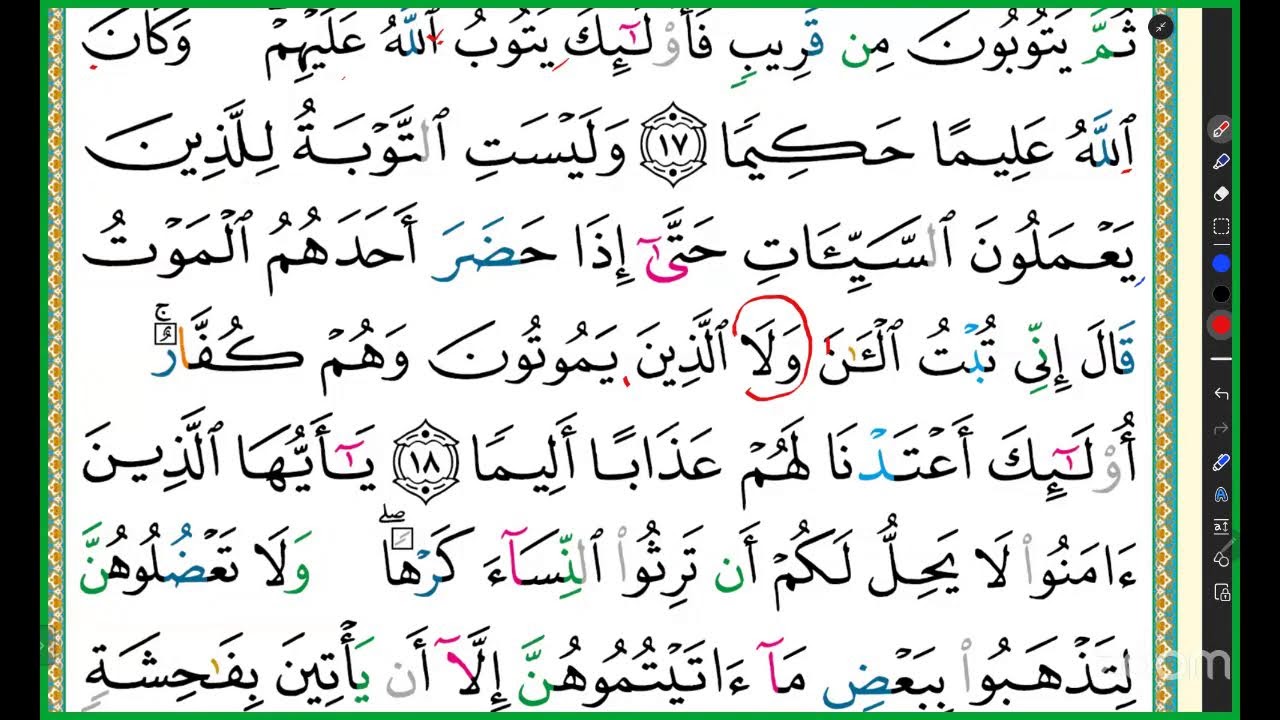 ثُمَّ يَتُوبُونَ مِن قَرِيبٍ فَأُوْلَٰٓئِكَ يَتُوبُ ٱللَّهُ عَلَيْهِمْ وَكَانَ
ٱللَّهُ عَلِيمًا حَكِيمًا ١٧ وَلَيْسَتِ ٱلتَّوْبَةُ لِلَّذِينَ
يَعْمَلُونَ ٱلسَّيِّئَاتِ حَتَّىٰٓ إِذَا حَضَرَ أَحَدَهُمُ ٱلْمَوْتُ
قَالَ إِنِّي تُبْتُ ٱلْـَٰٔنَ وَلَا ٱلَّذِينَ يَمُوتُونَ وَهُمْ كُفَّارٌ ۚ
أُوْلَٰٓئِكَ أَعْتَدْنَا لَهُمْ عَذَابًا أَلِيمًا ١٨ يَٰٓأَيُّهَا ٱلَّذِينَ
ءَامَنُوا۟ لَا يَحِلُّ لَكُمْ أَن تَرِثُوا۟ ٱلنِّسَآءَ كَرْهًا ۖ وَلَا تَعْضُلُوهُنَّ
لِتَذْهَبُوا۟ بِبَعْضِ مَآ ءَاتَيْتُمُوهُنَّ إِلَّآ أَن يَأْتِينَ بِفَٰحِشَةٍ
zoom